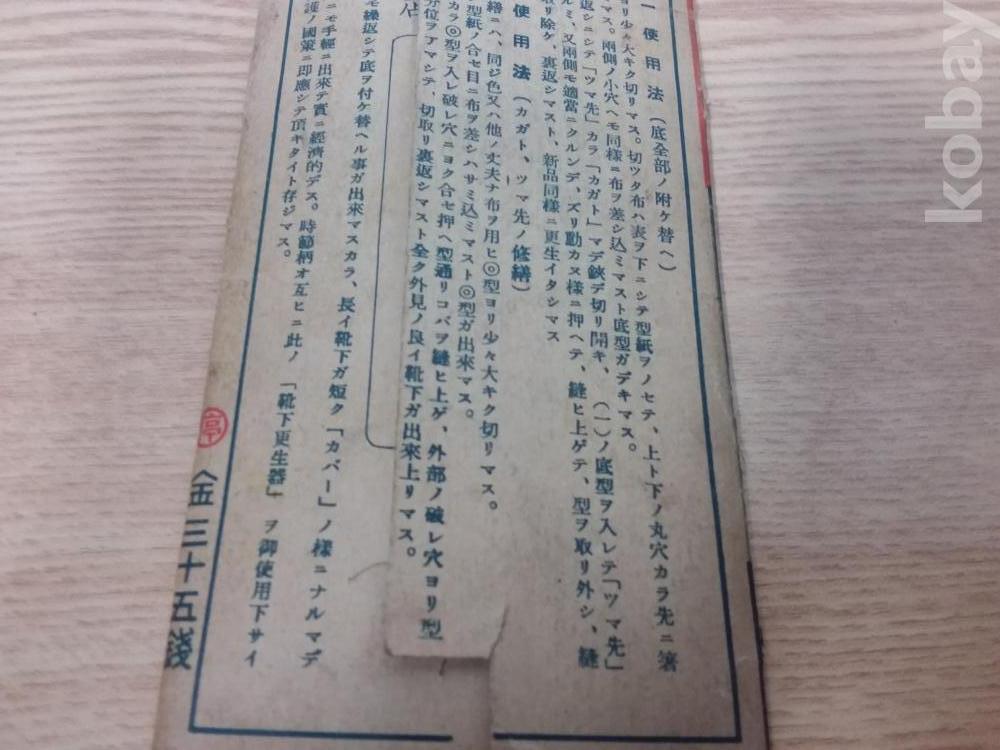 一 使用法(底全部ノ附ケ替ヘ)
ヨリ少々大キク切リマス。切ツタ布ハ表ヲ下ニシテ型紙ヲノセテ、上ト下ノ丸穴カラ先ニ箸
マス。兩側ノ小穴ヘモ同様ニ布ヲ差シ込ミマスト底型ガデキマス。
返シニシテ「ツマ先」カラ「カガト」マデ鋏デ切リ開キ、(一)ノ底型ヲ入レテ「ツマ先」
ルミ、又兩側モ適當ニクルンデ、ズリ動カヌ様ニ押ヘテ、縫ヒ上ゲテ、型ヲ取リ外シ、縫
取リ除ケ、裏返シマスト、新品同様ニ更生イタシマス
使用法(カガト、ツマ先ノ修繕)
繕ニハ、同ジ色又ハ他ノ丈夫ナ布ヲ用ヒ◎型ヨリ少々大キク切リマス。
型紙ノ合セ目ニ布ヲ差シハサミ込ミマスト◎型ガ出來マス。
カラ◎型ヲ入レ破レ穴ニヨク合セ押ヘ型通リコバヲ縫ヒ上ゲ、外部ノ破レ穴ヨリ型
分位ヲアマシテ、切取リ裏返シマスト全ク外見ノ良イ靴下ガ出來上リマス。
モ繰返シテ底ヲ付ケ替ヘル事ガ出來マスカラ、長イ靴下ガ短ク「カバー」ノ様ニナルマデ
ニモ手輕ニ出來テ實ニ經濟的デス。時節柄オ互ヒニ此ノ「靴下更生器」ヲ御使用下サイ
護ノ國策ニ即應シテ頂キタイト存ジマス。
亭
金三十五錢
kobay